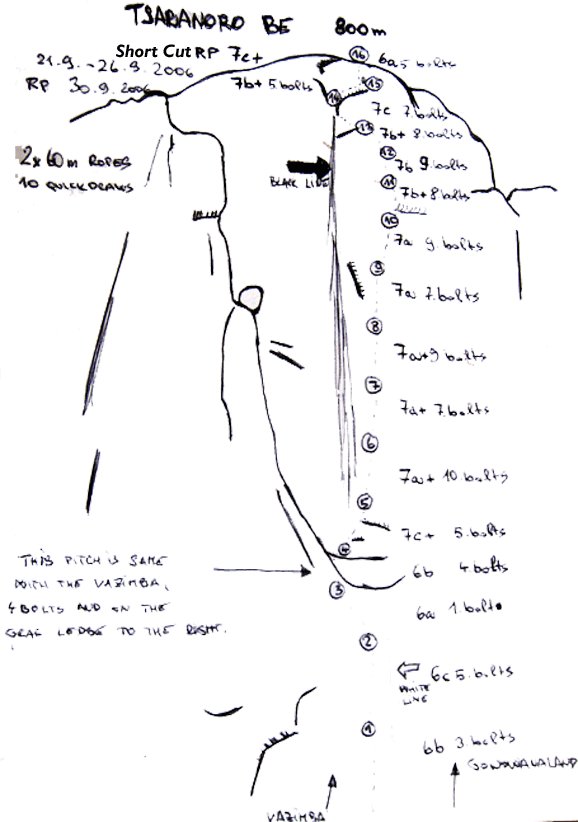 TSARANORO BE 800m
Short Cut RP 7c+
21.9. - 26.9. 2006
RP 30.9. 2006
2x60m ROPES
10 QUICKDRAWS
BLACK LINE
16 6a 5 bolts
7b+ 5 bolts
15
14
7c 7 bolts
13 7b+ 8 bolts
12
7b 9 bolts
11
7b+ 8 bolts
10
7a 9 bolts
9
7a 7 bolts
8
7a+ 9 bolts
7
7a+ 7 bolts
6
7a+ 10 bolts
5
7c+ 5 bolts
4
6b 4 bolts
THIS PITCH IS SAME
WITH THE VAZIMBA,
4 BOLTS AND ON THE
GRAS LEDGE TO THE RIGHT.
3
6a 1 bolt
2
6c 5 bolts
WHITE
LINE
1
6b 3 bolts
GONDWANALAND
VAZIMBA